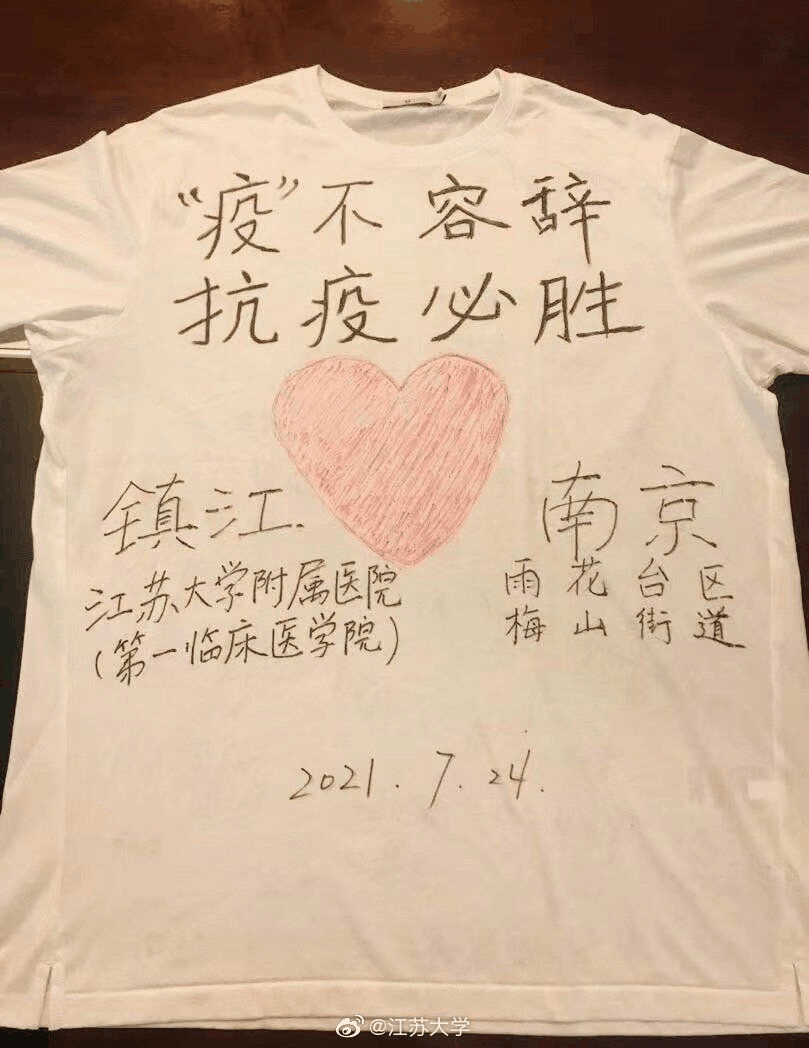 “疫”不容辞
抗疫必胜
镇江.
江苏大学附属医院
(第一临床医学院)
南京
雨花台区
梅山街道
2021.7.24.
@江苏大学